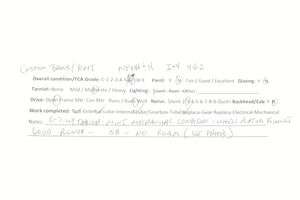 Custom Brass / KMT NYNH+H I-4 4-6-2
Overall condition/TCA Grade: C-1-2-3-4-5 7-8-9 Paint: Y N Fair / Good / Excellent Glazing: Y N
Tarnish: None Mild / Moderate / Heavy Lighting:
Drive: Open Frame Mtr Can Mtr Runs / Runs Well Noise: 2 3-4-5-6-7-8-9 Quiet/ Backhead/Cab: Y N
Work completed: Lube Internal Lube Gearbox Replace Gear Replace Electrical Mechanical
Notes: C-7 w/ tarnish - mint mechanical condition -
Good runner - OB - no foam (see photos)